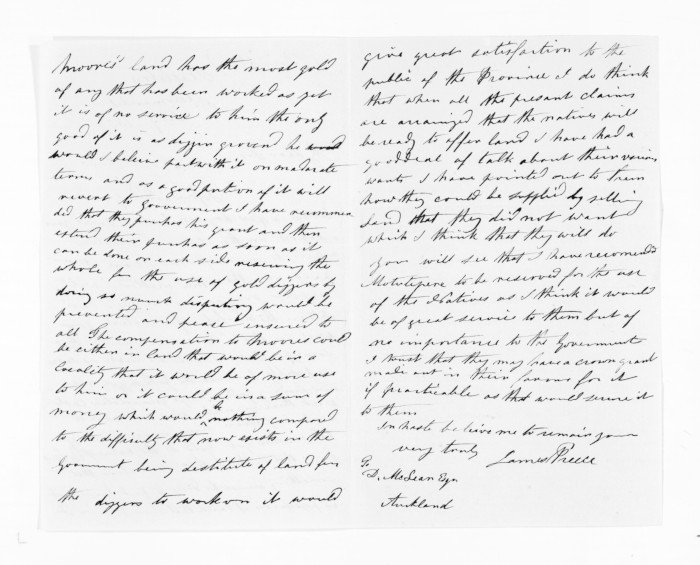 Moores' land has the most gold
of any that has been worked as yet
it is of no service to him the only
good of it is as diggin ground he would
would I beleive part with it on maderate
terms and as a good portion of it will
revert to government I have recommen
did that they purchas his grant and then
extend their purchas as soon as it
can be done on each side reserving the
whole for the use of gold diggers by
doing so much disputing would be
prevented and peace ensured to
all The compensation to Moores could
be either in land that would be in a
locality that it would be of more use
to him or it could be in a sum of
money which would be nothing compared
to the difficulty that now exists in the
Goverment being destitute of land for
the diggers to work on it would
give great satisfaction to the
public of the Province I do think
that when all the presant claims
are arrainged that the natives will
be ready to offer land I have had a
good deal of talk about their various
wants I have pointed out to them
how they could be supplied by selling
land that they did not want
which I think that they will do
you will see that I have recomended
Motutepere to be reserved for the use
of the Natives as I think it would
be of great service to them but of
no importance to the Government
I trust that they may have a crown grant
made out in their favour for it
if practicable as that would secure it
to them
In haste believe me to remain your
very truly
James Preece
To
D. McLean Esqr
Auckland